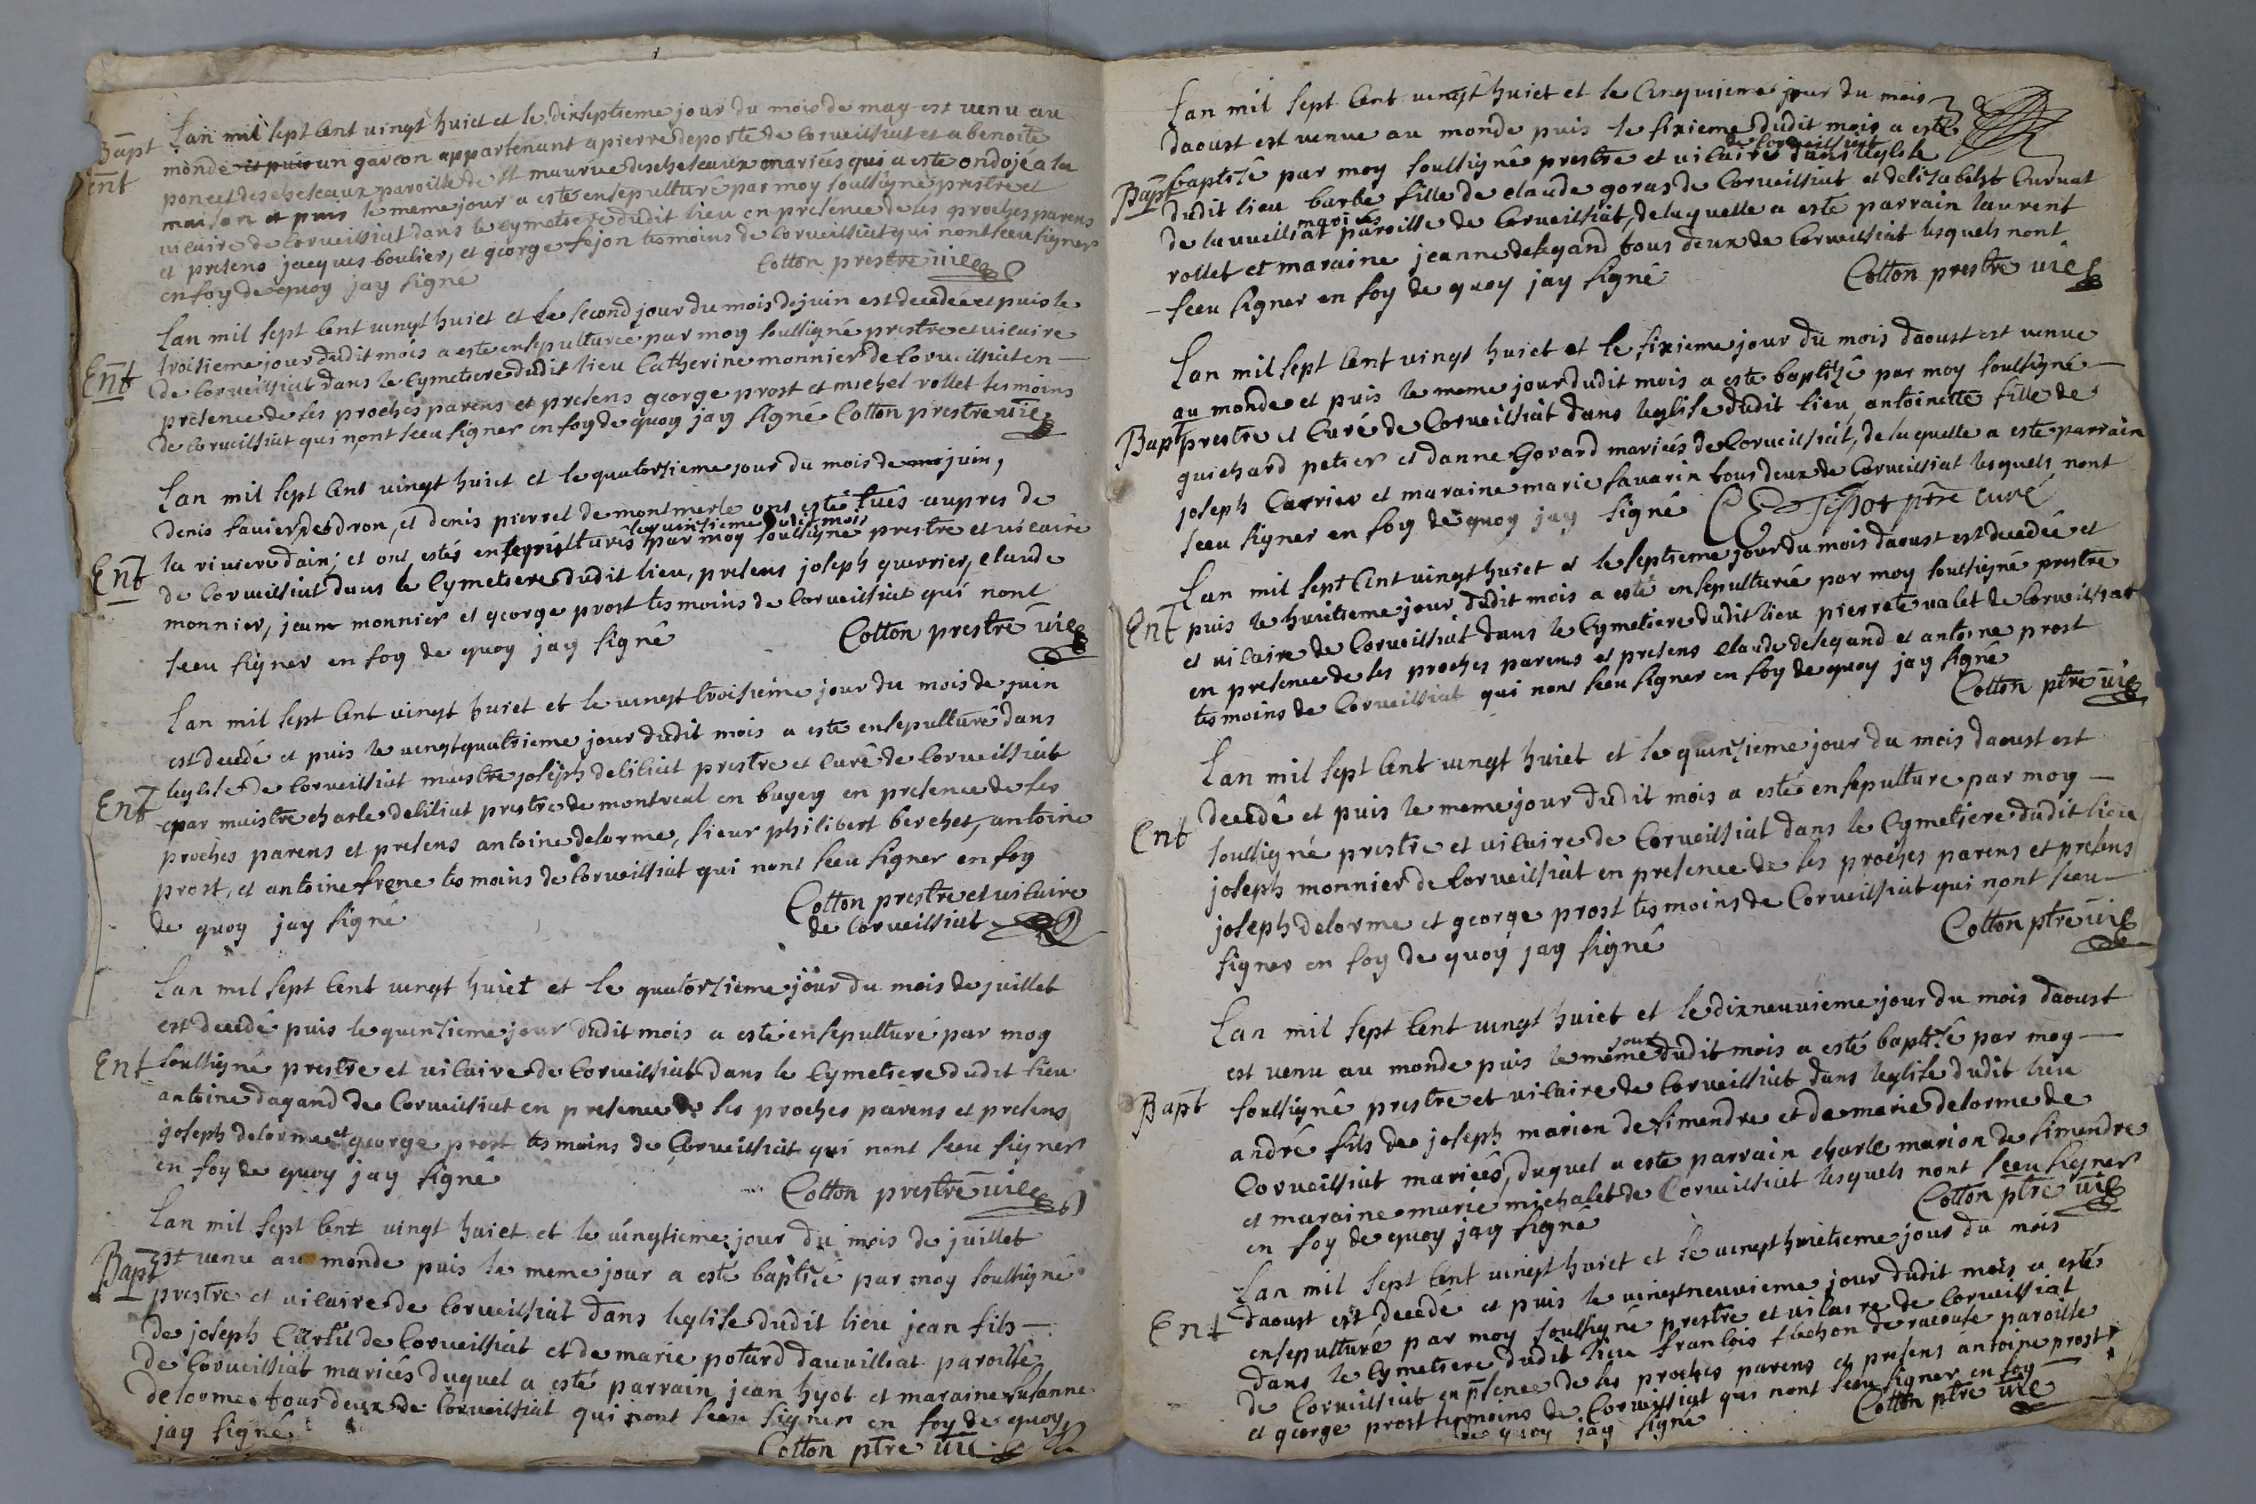 Bapt
Ent
Lan mil sept Cent vingt huict et le dixseptieme jour du mois de may est venu au
monde et puis un garcon appartenant a pierre deporte de Corveissiat et a benoite
poncet descheseaux paroisse de st maurice descheseaux mariés qui a este ondoje a la
maison et puis le meme jour a esté ensepulturé par moy soussigné prestre et
vicaire de Corveissiat dans le Cymetiere dudit lieu en presence de ses proches parens
et presens jacques boulier, et george sejon tesmoins de Corveissiat qui nont sceu signer
en foy de quoy jay signé
Cotton prestre vic
Lan mil sept Cent vingt huict et le second jour du mois de juin est decedée et puis le
Ent
troisieme jour dudit mois a este ensepulturée par moy soussigné prestre et vicaire
de Corveissiat dans le Cymetiere dudit lieu Catherine monnier de Corveissiat en
presence de ses proches parens et presens george prost et michel rollet tesmoins
de Corveissiat qui nont sceu signer en foy de quoy jay signé Cotton prestre vic
Lan mil sept Cent vingt huict et le quatorsieme jour du mois de juin,
denis favier dedron, et denis pierrel de montmerle ont esté tués aupres de
le quinsieme dudit mois
Ent
la riviere dain, et ont estés ensepulturés par moy soussigné prestre et vicaire
de Corveissiat dans le Cymetiere dudit lieu, presens joseph guerrier, claude
monnier, jean monnier et george prost tesmoins de Corveissiat qui nont
sceu signer en foy de quoy jay signé
Cotton prestre vic
Lan mil sept Cent vingt huict et le vingt troisieme jour du mois de juin
est decedé et puis le vingtquatrieme jour dudit mois a este ensepulturé dans
leglise de Corveissiat maistre joseph delilia prestre et Curé de Corveissiat
Ent
par maistre charle deliliat prestre de montreal en bugey en presence de ses
proches parens et presens antoine delorme, sieur philibert berchet, antoine
prost, et antoine frene tesmoins de Corveissiat qui nont sceu signer en foy
de quoy jay signé
Cotton prestre et vicaire
de Corveissiat
Lan mil sept Cent vingt huict et le quatorsieme jour du mois de juillet
est decedé puis le quinsieme jour dudit mois a esté ensepulturé par moy
Ent
soussigné prestre et vicaire de Corveissiat dans le Cymetiere dudit lieu
antoine dagand de Corveissiat en presence de ses proches parens et presens
joseph delorme et george prost tesmoins de Corveissiat qui nont sceu signer
en foy de quoy jay signé
Cotton prestre vic
Lan mil sept Cent vingt huict et le vingtieme jour du mois de juillet
Bapt
est venu au monde puis le meme jour a esté baptisé par moy soussigné
prestre et vicaire de Corveissiat dans leglise dudit lieu jean fils
de joseph Curtil de Corveissiat et de marie potard dauvissiat paroisse
de Corveissiat mariés duquel a esté parrain jean hyot et maraine susanne
delorme tous deux de Corveissiat qui nont sceu signer en foy de quoy
jay signé
Cotton ptre vic
Lan mil sept Cent vingt huict et le Cinquieme jour du mois
daoust est venue au monde puis le sixieme dudit mois a esté
de Corveissiat
Bapt
baptisé par moy soussigné prestre et vicaire dans leglise
dudit lieu barbe fille de claude goras de Corveissiat et delisabeht Curvat
mariés
de lauvissiat paroisse de Corveissiat, de laquelle a esté parrain laurent
rollet et maraine jeanne delegand tous deux de Corveissiat lesquels nont
sceu signer en foy de quoy jay signé
Cotton prestre vic
Lan mil sept Cent vingt huict et le sixieme jour du mois daoust est venue
au monde et puis le meme jour dudit mois a este baptisé par moy soussigné
Bapt
prestre et Curé de Corveissiat dans leglise dudit lieu, antoinette fille de
guichard petier et danne Govard mariés de Corveissiat, de laquelle a este parrain
joseph Carrier et maraine marie savarin tous deux de Corveissiat lesquels nont
sceu signer en foy de quoy jay signé
Tissot ptre curé
Lan mil sept Cent vingt huict et le septieme jour du mois daoust est decedée et
Ent
puis le huictieme jour dudit mois a esté ensepulturée par moy soussigné prestre
et vicaire de Corveissiat dans le Cymetiere dudit lieu pierrete valet de Corveissiat
en presence de ses proches parens et presens claude delegand et antoine prost
tesmoins de Corveissiat qui nont sceu signer en foy de quoy jay signé
Cotton ptre vic
Lan mil sept Cent vingt huict et le quinsieme jour du mois daoust est
decedé et puis le meme jour dudit mois a esté ensepulture par moy
Ent
soussigné prestre et vicaire de Corveissiat dans le Cymetiere dudit lieu
joseph monnier de Corveissiat en presence de ses proches parens et presens
joseph delorme et george prost tesmoins de Corveissiat qui nont sceu
signer en foy de quoy jay signé
Cotton ptre vic
Lan mil sept Cent vingt huict et le dixneuvieme jour du mois daoust
jour
est venu au monde puis le meme dudit mois a esté baptisé par moy
Bapt
soussigné prestre et vicaire de Corveissiat dans leglise dudit lieu
andré fils de joseph marion de simendre et de marie delorme de
Corveissiat mariés, duquel a este parrain charle marion de simendre
et maraine marie michalet de Corveissiat lesquels nont sceu signer
en foy de quoy jay signé
Cotton ptre vic
Lan mil sept Cent vingt huict et le vingt huictieme jour du mois
daoust est decedé et puis le vingtneuvieme jour dudit mois a esté
Ent
ensepulturé par moy soussigné prestre et vicaire de Corveissiat
dans le Cymetiere dudit lieu francois flechon de racouse paroisse
de Corveissiat en psence de ses proches parens et presens antoine prost
et george prost tesmoins de Corveissiat qui nont sceu signer en foy
de quoy jay signé
Cotton ptre vic